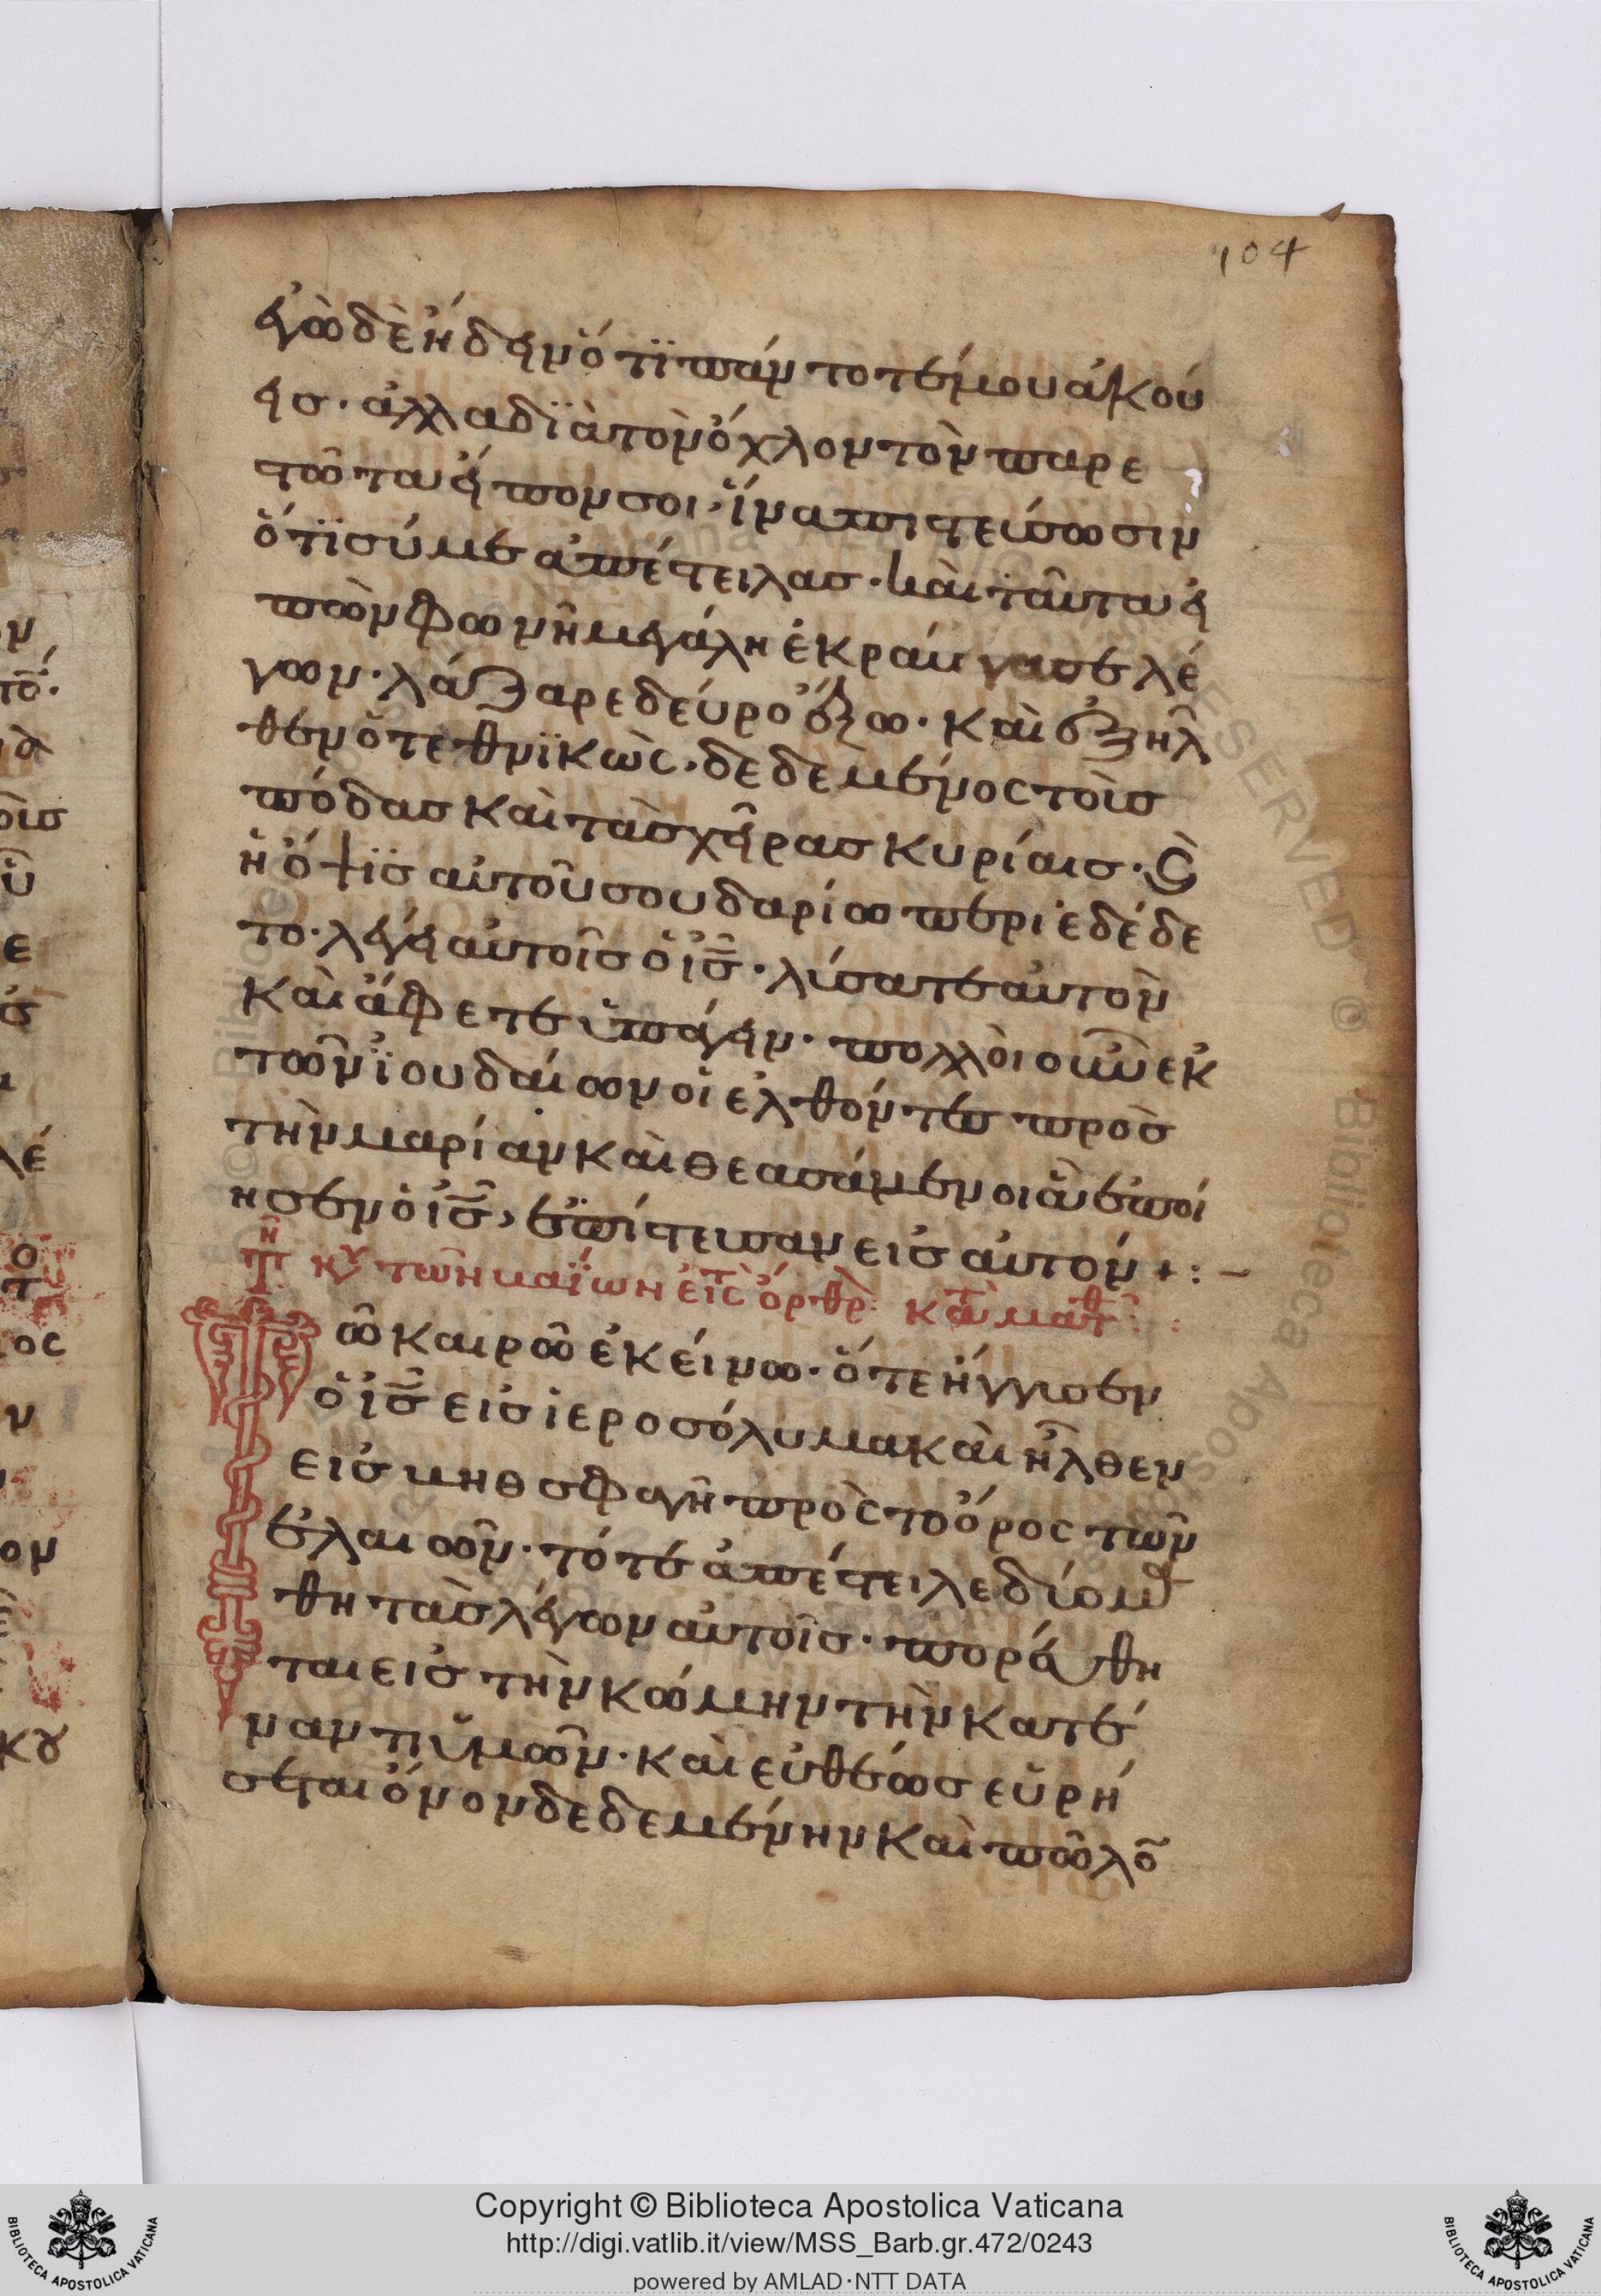 104
ἐγὼ δὲ ἤδειν ὅτϊ πάντοτέ μου ἀκού
εισ· ἀλλα δϊὰ τὸν ὄχλον τὸν παρε
τῶτα εἶπον σοι, ἵνα πιστεύσωσιν
ὅτϊ σύ με ἀπέστειλας· καὶ ταῦτα εἰ
πὼν φωνῆ μεγάλη ἐκραύγασε λέ
γων· λάζαρε δεύρο ἔξω· καὶ ἐξῆλ
θεν ὅ τεθνϊκὼς· δεδεμένος τοὶσ
πόδασ καὶ τὰσ χεῖρασ κυρίαισ· ϗ
ἡ ὄψϊσ αὐτοῦ σουδαρίω περιεδέδε
το· λέγει αὐτοῖσ ὅ ἰς̅· λύσατε αὐτὸν
καὶ ἄφετε ὑπάγειν· πολλὸι οὖν ἐκ
τῶν ϊουδαίων οἱ ἐλθόντες πρὸσ
τὴν μαρίαν καὶ θεασάμενοι ἃ ἐποί
ησεν ὁ ἰς̅, ἐπίστευσαν εἰσ αὐτόν +:~
Τῆ κυ τῶν βαΐων εἰς ὄρθρ: κατὰ ματθ:
Τῶ καιρῶ ἐκείνω· ὅτε ἤγγισεν
ὅ ἰς̅ εἰσ ἱεροσόλυμα καὶ ἦλθεν
εἰσ βηθσφαγῆ πρὸς τὸ ὄρος τῶν
ἐλαιῶν· τότε ἀπέστειλε δύο μα
θητὰσ λέγων αὐτοῖσ· πορεύθη
ται εἰσ τὴν κώμην τὴν κατέ
ναντι ὑμῶν· καὶ εὐθέωσ εὑρή
σεται ὄνον δεδεμένην καὶ πῶλο̅
Copyright © Biblioteca Apostolica Vaticana
http://digi.vatlib.it/view/MSS_Barb.gr.472/0243
powered by AMLAD·NTT DATA
BIBLIOTECA APOSTOLICA VATICANA
BIBLIOTECA APOSTOLICA VATICANA